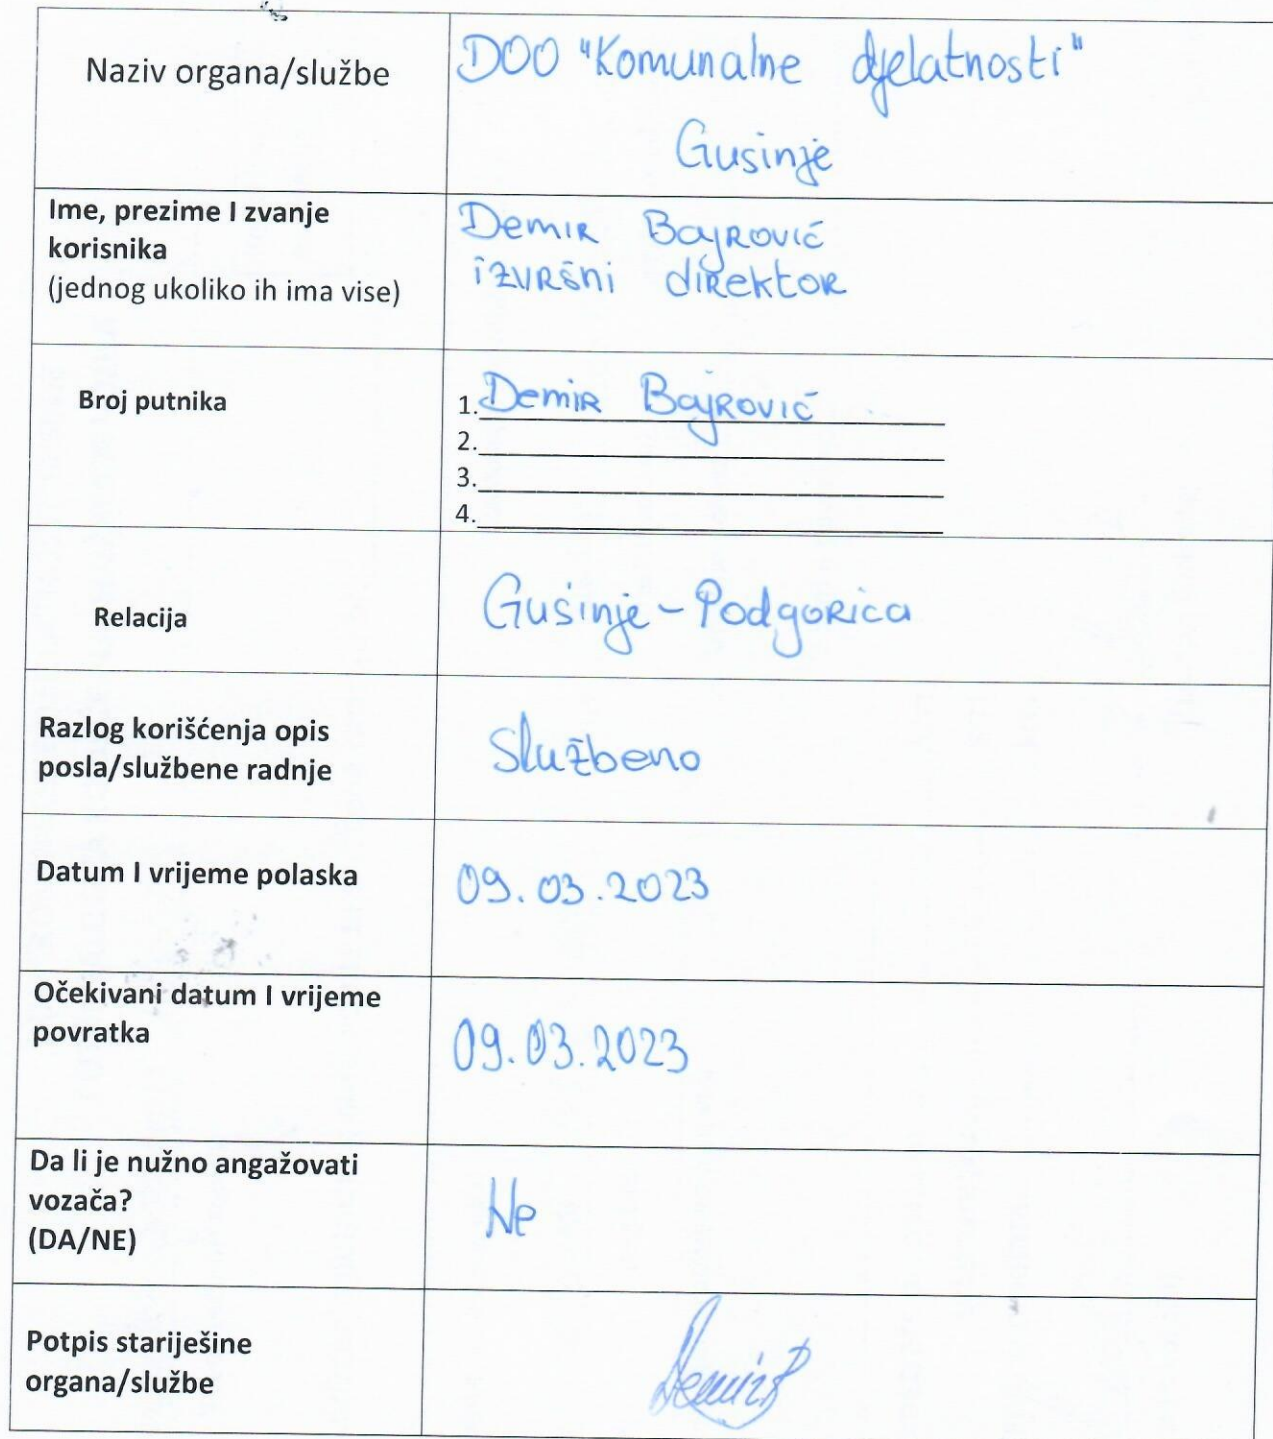 Naziv organa/službe
DOO "Komunalne djelatnosti"
Gusinje
Ime, prezime I zvanje
korisnika
(jednog ukoliko ih ima vise)
Demir Bajrović
izvršni direktor
Broj putnika
1. Demir Bajrović
2.
3.
4.
Relacija
Gusinje - Podgorica
Razlog korišćenja opis
posla/službene radnje
Službeno
Datum I vrijeme polaska
09.03.2023
Očekivani datum I vrijeme
povratka
09.03.2023
Da li je nužno angažovati
vozača?
(DA/NE)
Ne
Potpis stariješine
organa/službe